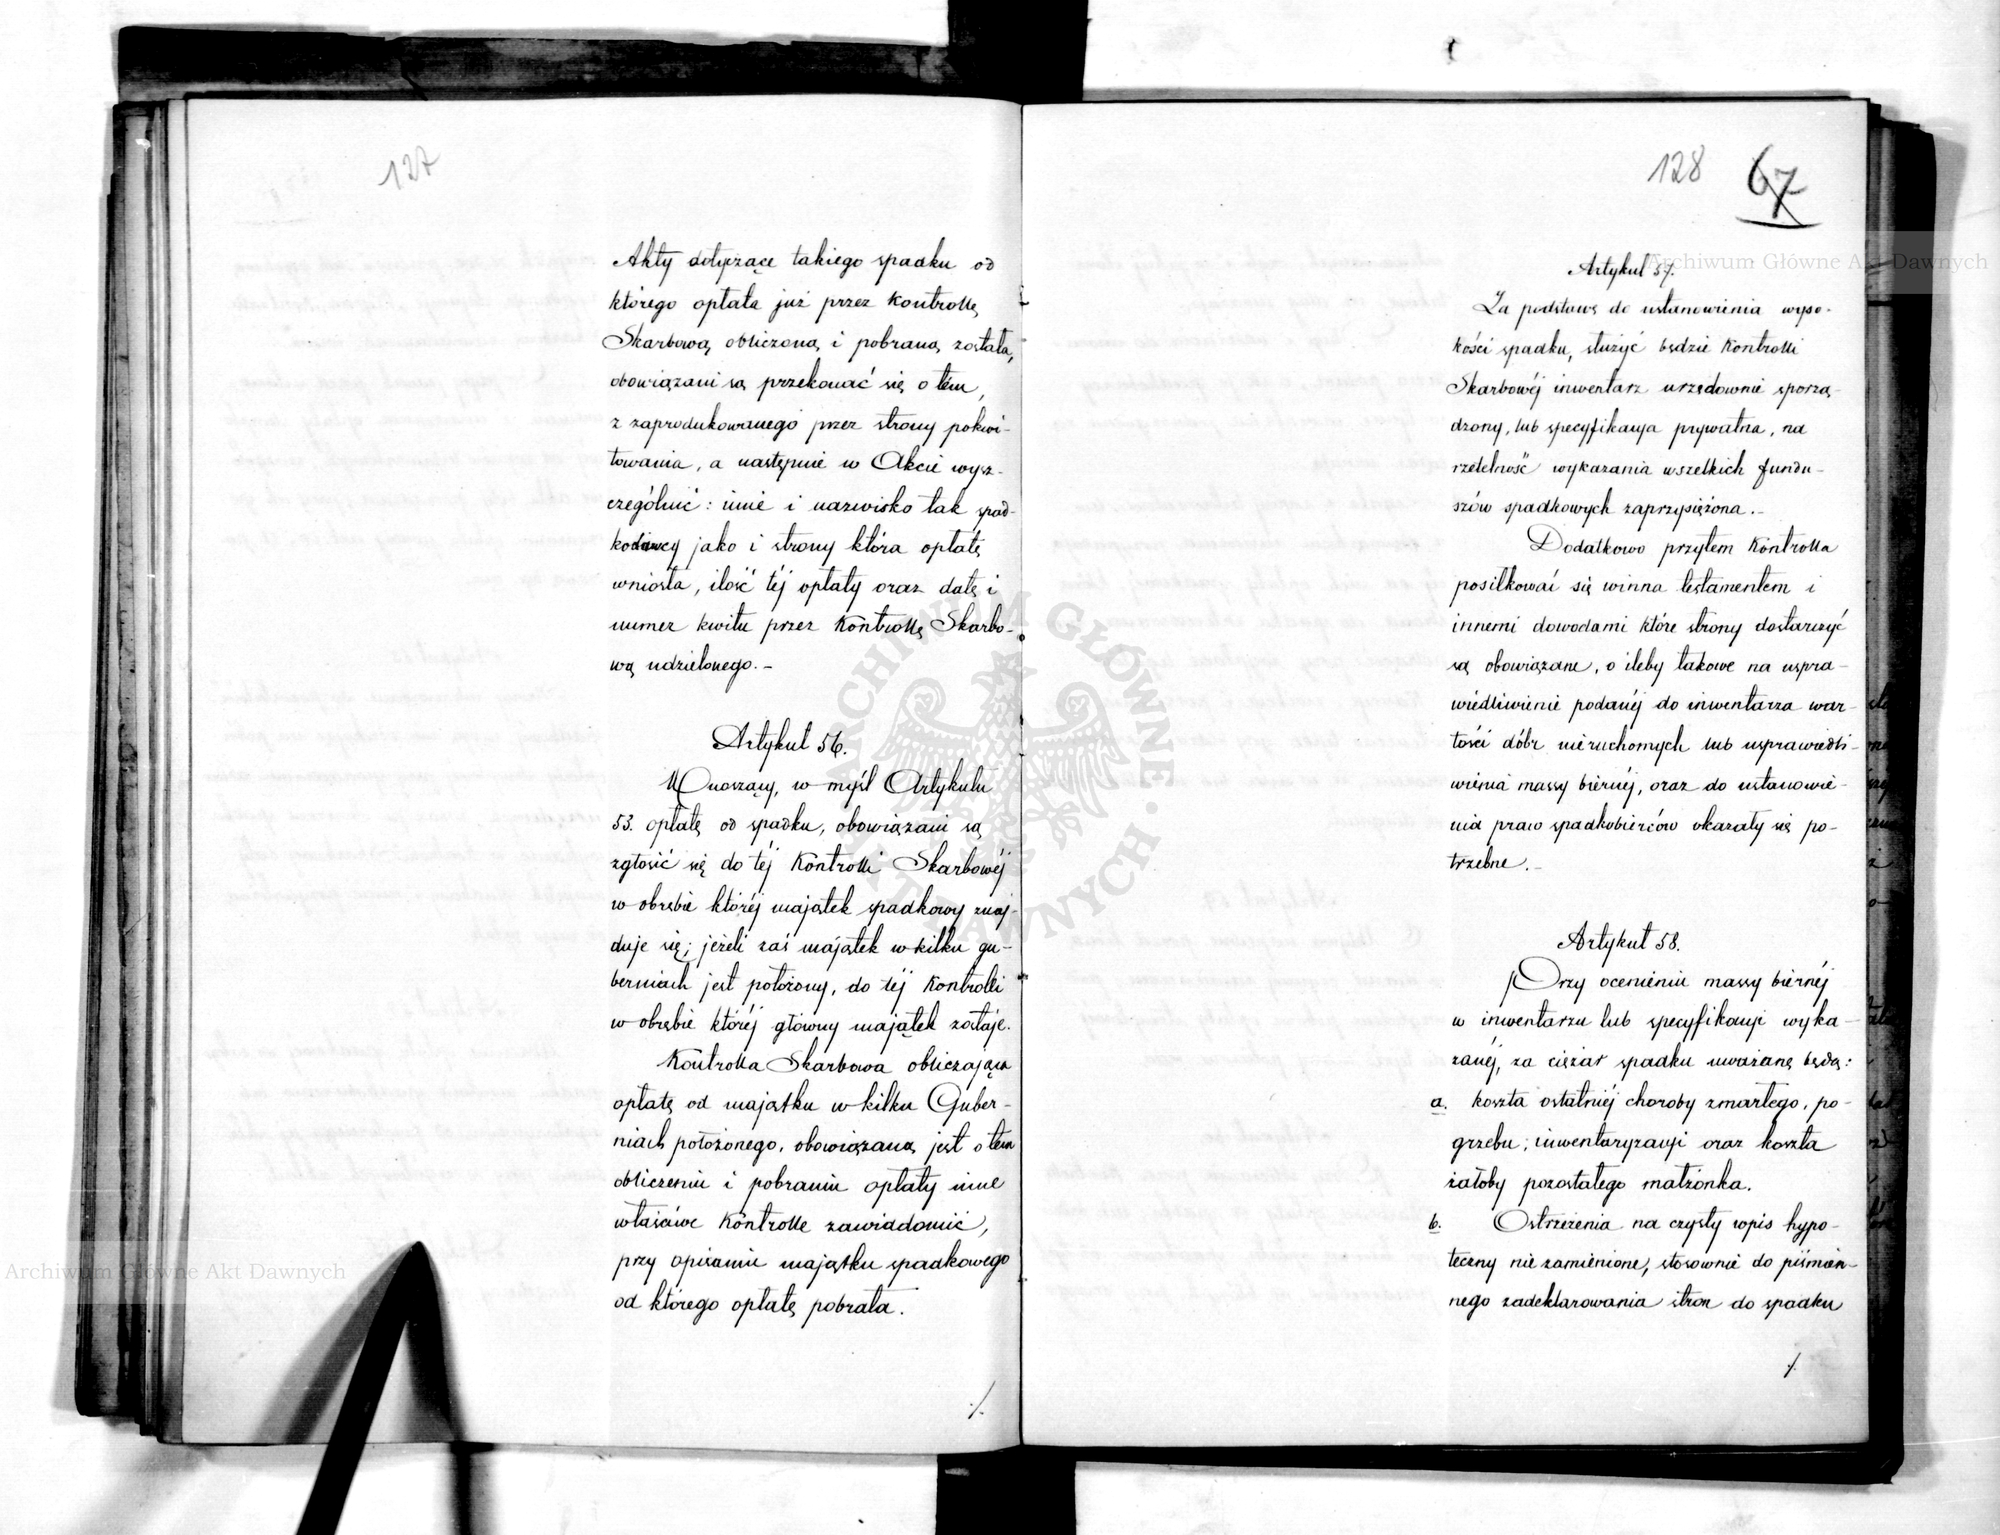 127
Akty dotyczące takiego spadku od
którego opłata już przez Kontrollę
Skarbową obliczoną i pobraną została,
obowiązani są przekonać się o tém,
z zaprodukowanego przez strony pokwi-
towania, a następnie w Akcie wysz-
czególnić: imie i nazwisko tak spad-
kodawcy jako i strony która opłatę
wniosła, ilość téj opłaty oraz datę i
numer kwitu przez Kontrollę Skarbo-
wą udzielonego.-
Artykuł 56.
Wnoszący, w myśl Artykułu
53. opłatę od spadku, obowiązani są
zgłosić się do téj Kontrolli Skarbowéj
w obrębie któréj majątek spadkowy znaj-
duje się; jeżeli zaś majątek w kilku gu-
berniach jest położony, do téj Kontrolli
w obrębie któréj główny majątek zostaje.
Kontrolla Skarbowa obliczająca
opłatę od majątku w kilku Guber-
niach położonego, obowiązaną jest o tem
obliczeniu i pobraniu opłaty inne
właściwe Kontrolle zawiadomić,
przy opisaniu majątku spadkowego
od którego opłatę pobrała.
./.
128 67
Artykuł 57.
Za podstawę do ustanowienia wyso-
kości spadku, służyć będzie Kontrolli
Skarbowéj inwentarz urzędownie sporzą-
dzony, lub specyfikacya prywatna, na
rzetelność wykazania wszelkich fundu-
szów spadkowych zaprzysiężona.-
Dodatkowo przytem Kontrolla
posiłkować się winna testamentem i
innemi dowodami które strony dostarczyć
są obowiązane, o ileby takowe na uspra-
wiedliwienie podanéj do inwentarza war-
tości dóbr nieruchomych lub usprawiedli-
wienia massy biernéj, oraz do ustanowie-
nia praw spadkobierców okazały się po-
trzebne.-
Artykuł 58.
Przy ocenieniu massy biernéj
w inwentarzu lub specyfikacyi wyka-
zanéj, za ciężar spadku uważane będą:
a. koszta ostatniéj choroby zmarłego, po-
grzebu; inwentaryzacyi oraz koszta
żałoby pozostałego małżonka.
b. Ostrzeżenia na czysty wpis hypo-
teczny nie zamienione, stosownie do piśmien-
nego zadeklarowania stron do spadku
./.
Archiwum Główne Akt Dawnych
Archiwum Główne Akt Dawnych
ARCHIWUM GŁÓWNE AKT DAWNYCH